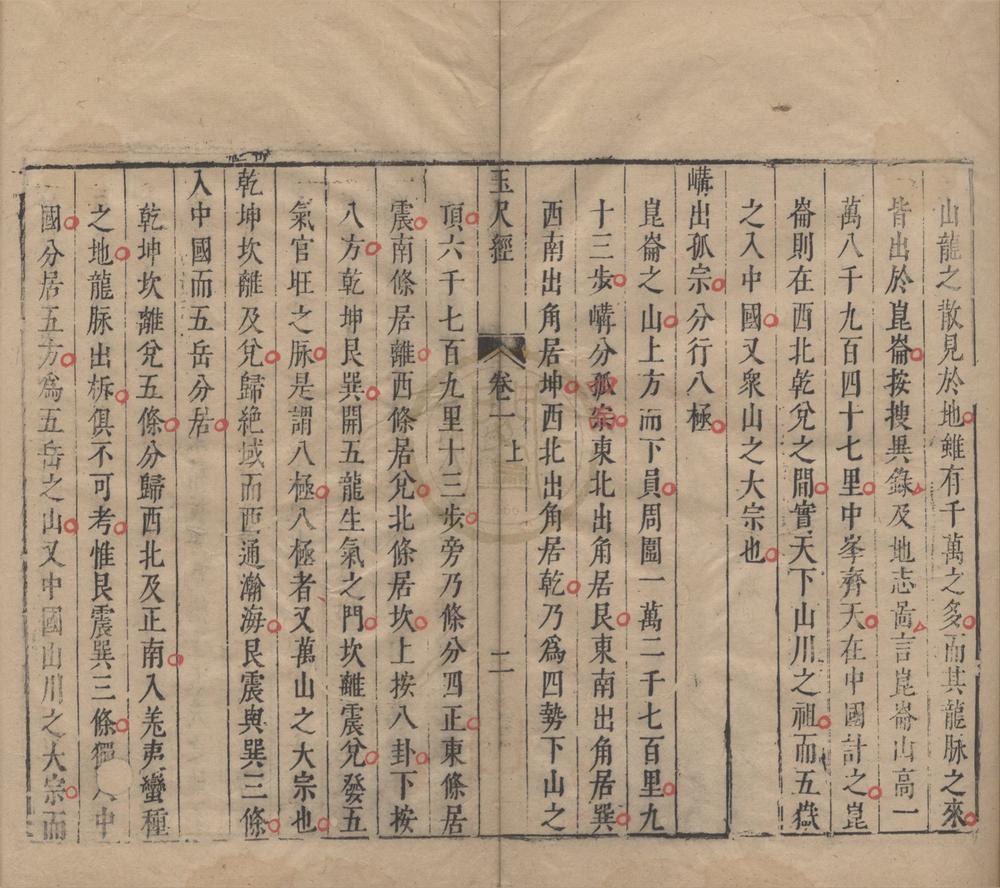 山龍之散見於地雖有千萬之多而其龍脉之來
皆出於崑崙按搜異錄及地志啚言崑崙山高一
萬八千九百四十七里中峯齊天在中國計之崑
崙則在西北乾兌之間實天下山川之祖而五嶽
之入中國又衆山之大宗也
嶙出孤宗分行八極
崑崙之山上方而下員周圍一萬二千七百里九
十三歩嶙分孤宗東北出角居艮東南出角居巽
西南出角居坤西北出角居乾乃爲四勢下山之
玉尺經 卷一 上 二
頂六千七百九里十三歩旁乃條分四正東條居
震南條居離西條居兌北條居坎上按八卦下按
八方乾坤艮巽開五龍生氣之門坎離震兌發五
氣官旺之脉是謂八極八極者又萬山之大宗也
乾坤坎離及兌歸絶域而西通瀚海艮震與巽三條
入中國而五岳分居
乾坤坎離兌五條分歸西北及正南入羌夷蠻種
之地龍脉出柝俱不可考惟艮震巽三條獨入中
國分居五方爲五岳之山又中國山川之大宗而